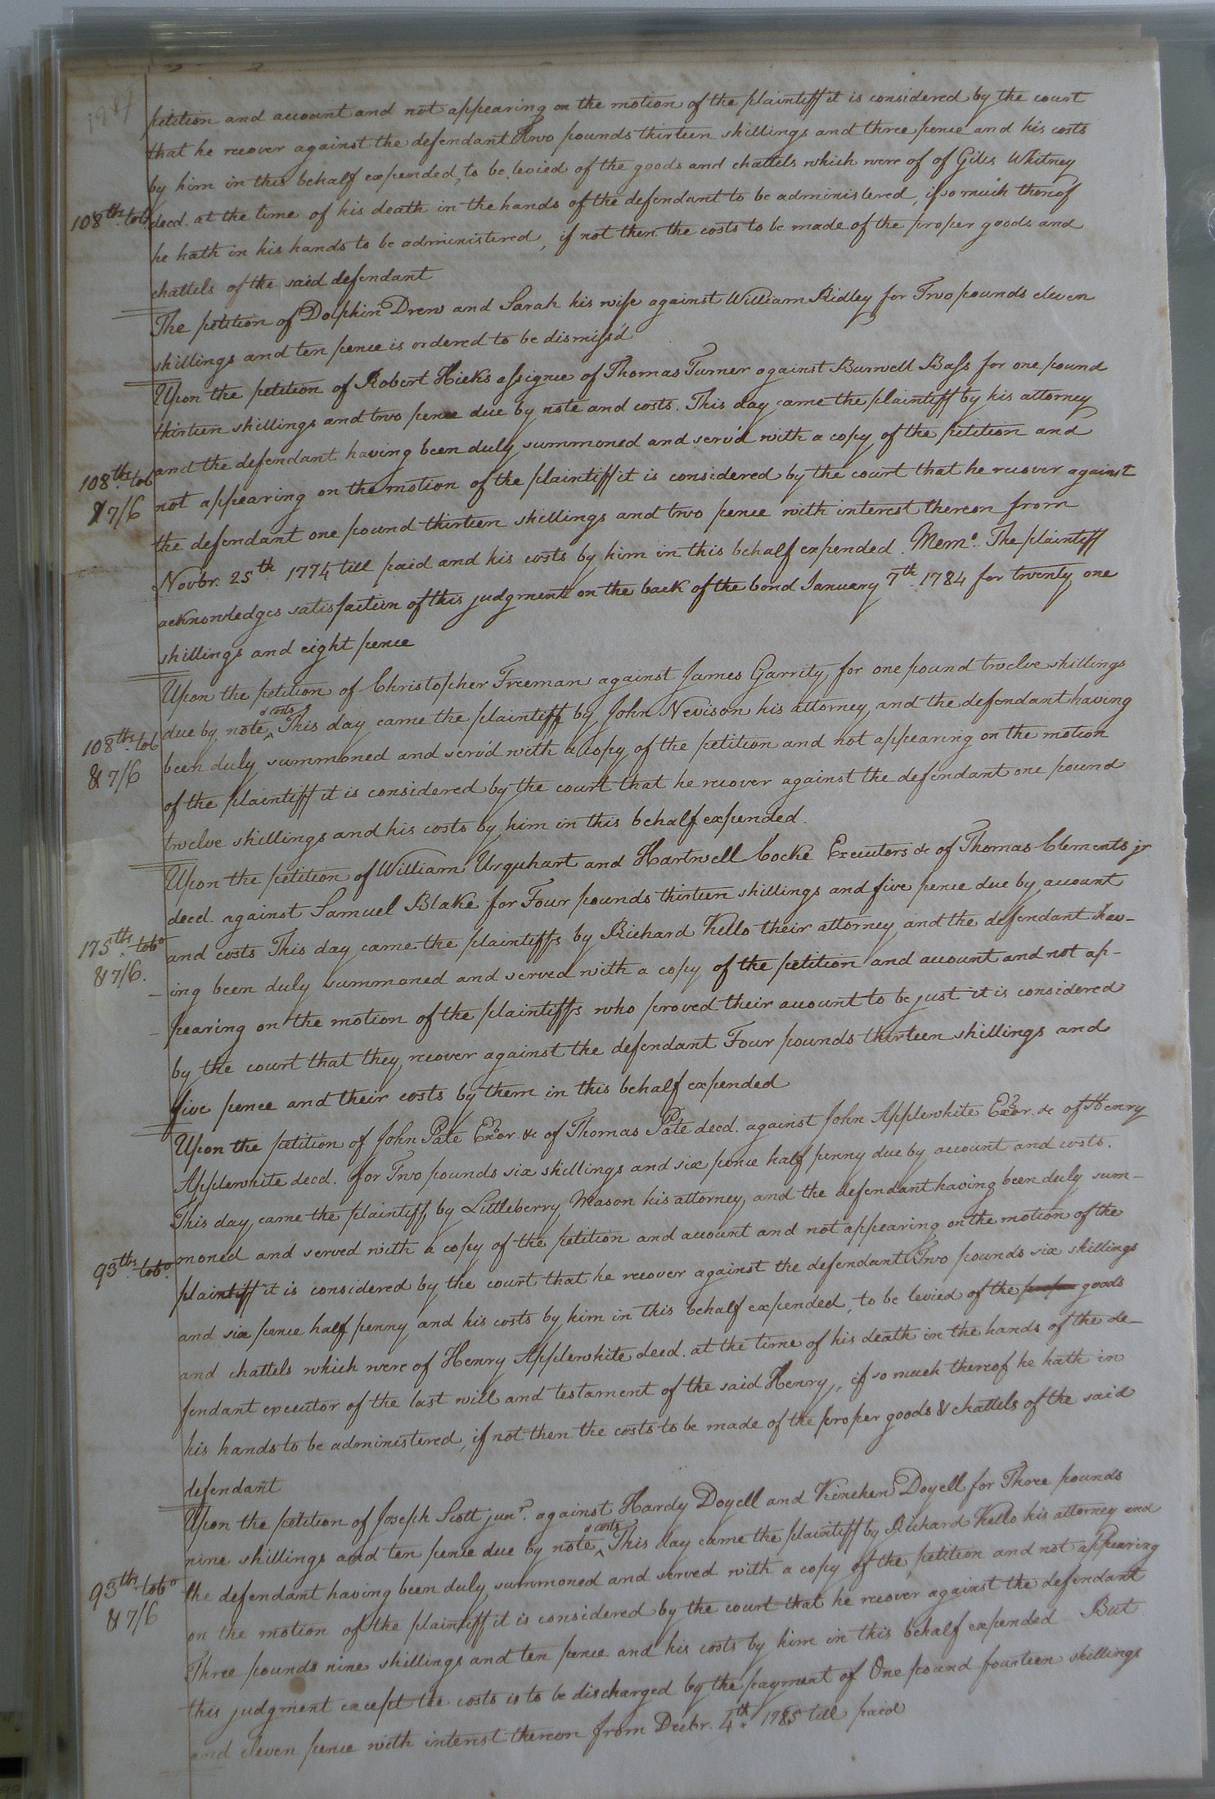 petition and account and not appearing on the motion of the plaintiff it is considered by the court
that he recover against the defendant Two pounds thirteen shillings and three pence and his costs
by him in this behalf expended, to be levied of the goods and chattels which were of of Giles Whitney
108ths. tob decd. at the time of his death in the hands of the defendant to be administered, if so much thereof
he hath in his hands to be administered, if not then the costs to be made of the proper goods and
chattels of the said defendant
The petition of Dolphin Drew and Sarah his wife against William Ridley for Two pounds eleven
shillings and ten pence is ordered to be dismiss'd
Upon the petition of Robert Hicks assignee of Thomas Turner against Burwell Bass for one pound
thirteen shillings and two pence due by note and costs. This day came the plaintiff by his attorney
108ths. tob and the defendant having been duly summoned and serv'd with a copy of the petition and
& 7/6 not appearing on the motion of the plaintiff it is considered by the court that he recover against
the defendant one pound thirteen shillings and two pence with interest thereon from
Novbr. 25th 1774 till paid and his costs by him in this behalf expended. Memo. The plaintiff
acknowledges satisfaction of this judgment on the back of the bond January 7th 1784 for twenty one
shillings and eight pence
Upon the petition of Christopher Freeman against James Garrity, for one pound twelve shillings
108ths. tob due by note & costs This day came the plaintiff by John Nevison his attorney and the defendant having
& 7/6 been duly summoned and serv'd with a copy of the petition and not appearing on the motion
of the plaintiff it is considered by the court that he recover against the defendant one pound
twelve shillings and his costs by him in this behalf expended.
Upon the petition of William Urquhart and Hartwell Cocke Executors &c of Thomas Clements jr
decd. against Samuel Blake for Four pounds thirteen shillings and five pence due by account
175ths. tobo and costs This day came the plaintiffs by Richard Kello their attorney and the defendant hav-
& 7/6. -ing been duly summoned and served with a copy of the petition and account and not ap-
-pearing on the motion of the plaintiffs who proved their account to be just it is considered
by the court that they recover against the defendant Four pounds thirteen shillings and
five pence and their costs by them in this behalf expended
Upon the petition of John Pate Exor &c of Thomas Pate decd. against John Applewhite Exor. &c of Henry
Applewhite decd. for Two pounds six shillings and six pence half penny due by account and costs.
This day came the plaintiff by Littleberry Mason his attorney and the defendant having been duly sum-
93ths. tobo. moned and served with a copy of the petition and account and not appearing on the motion of the
plaintiff it is considered by the court that he recover against the defendant Two pounds six shillings
and six pence half penny and his costs by him in this behalf expended, to be levied of the goods
and chattels which were of Henry Applewhite decd. at the time of his death in the hands of the de-
fendant executor of the last will and testament of the said Henry, if so much thereof he hath in
his hands to be administered, if not then the costs to be made of the proper goods & chattels of the said
defendant
Upon the petition of Joseph Scott junr. against Hardy Doyell and Kinchen Doyell for Three pounds
nine shillings and ten pence due by note & costs This day came the plaintiff by Richard Kello his attorney and
93ths. tobo the defendant having been duly summoned and served with a copy of the petition and not appearing
& 7/6 on the motion of the plaintiff it is considered by the court that he recover against the defendant
Three pounds nine shillings and ten pence and his costs by him in this behalf expended But
this judgment except the costs is to be discharged by the payment of One pound fourteen shillings
and eleven pence with interest thereon from Decbr. 4th. 1785 till paid